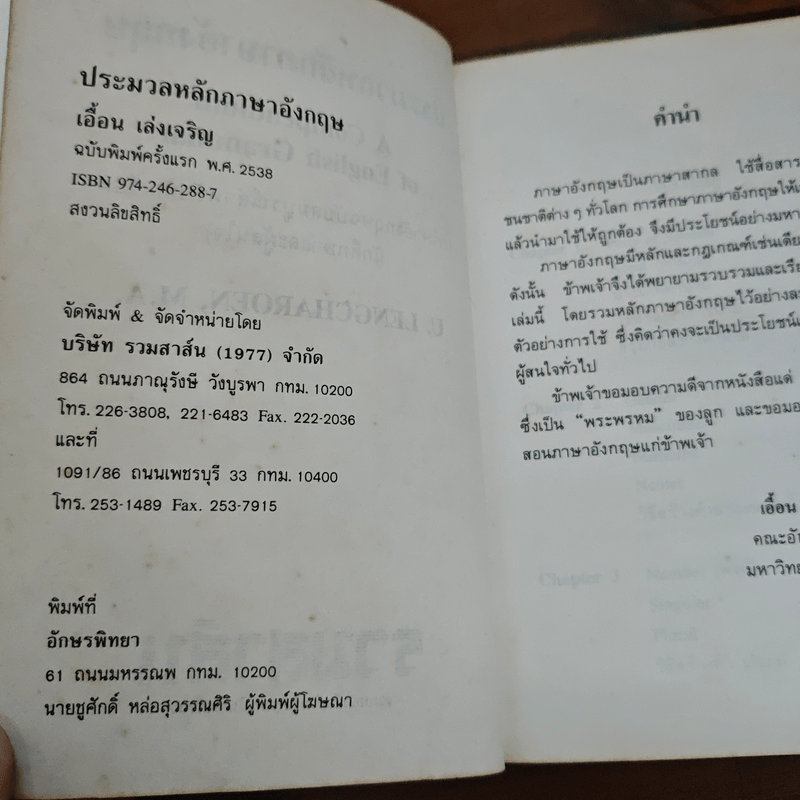 ประมวลหลักภาษาอังกฤษ
เอื้อน เล่งเจริญ
ฉบับพิมพ์ครั้งแรก พ.ศ. 2538
ISBN 974-246-288-7
สงวนลิขสิทธิ์
จัดพิมพ์ & จัดจำหน่ายโดย
บริษัท รวมสาส์น (1977) จำกัด
864 ถนนภาณุรังษี วังบูรพา กทม. 10200
โทร. 226-3808, 221-6483 Fax. 222-2036
และที่
1091/86 ถนนเพชรบุรี 33 กทม. 10400
โทร. 253-1489 Fax. 253-7915
พิมพ์ที่
อักษรพิทยา
61 ถนนมหรรณพ กทม. 10200
นายชูศักดิ์ หล่อสุวรรณศิริ ผู้พิมพ์ผู้โฆษณา
คำนำ
ภาษาอังกฤษเป็นภาษาสากล ใช้สื่อสาร
ชนชาติต่าง ๆ ทั่วโลก การศึกษาภาษาอังกฤษให้
แล้วนำมาใช้ให้ถูกต้อง จึงมีประโยชน์อย่างมหา
ภาษาอังกฤษมีหลักและกฎเกณฑ์เช่นเดีย
ดังนั้น ข้าพเจ้าจึงได้พยายามรวบรวมและเรีย
เล่มนี้ โดยรวมหลักภาษาอังกฤษไว้อย่างละ
ตัวอย่างการใช้ ซึ่งคิดว่าคงจะเป็นประโยชน์แ
ผู้สนใจทั่วไป
ข้าพเจ้าขอมอบความดีจากหนังสือแด่
ซึ่งเป็น “พระพรหม” ของลูก และขอมอ
สอนภาษาอังกฤษแก่ข้าพเจ้า
เอื้อน
คณะอัก
มหาวิทย